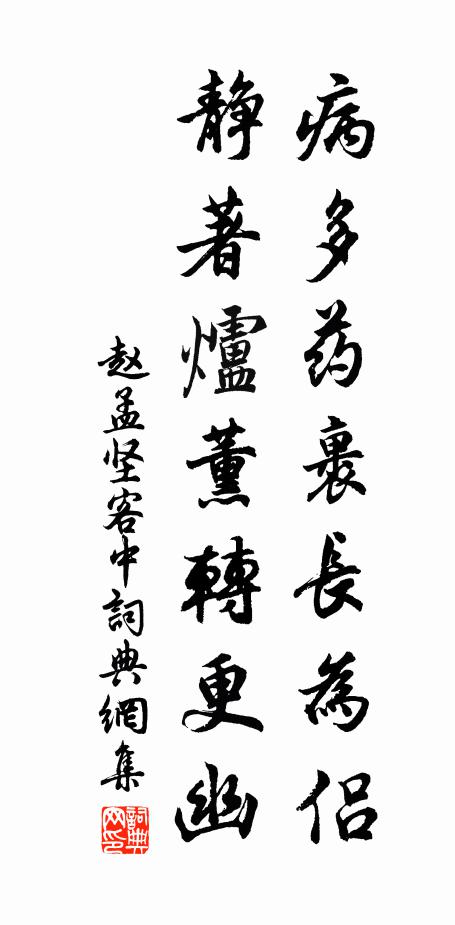 病多药裹長為侣
静著爐薰轉更幽
赵孟坚客中詞典網集
詞典网印